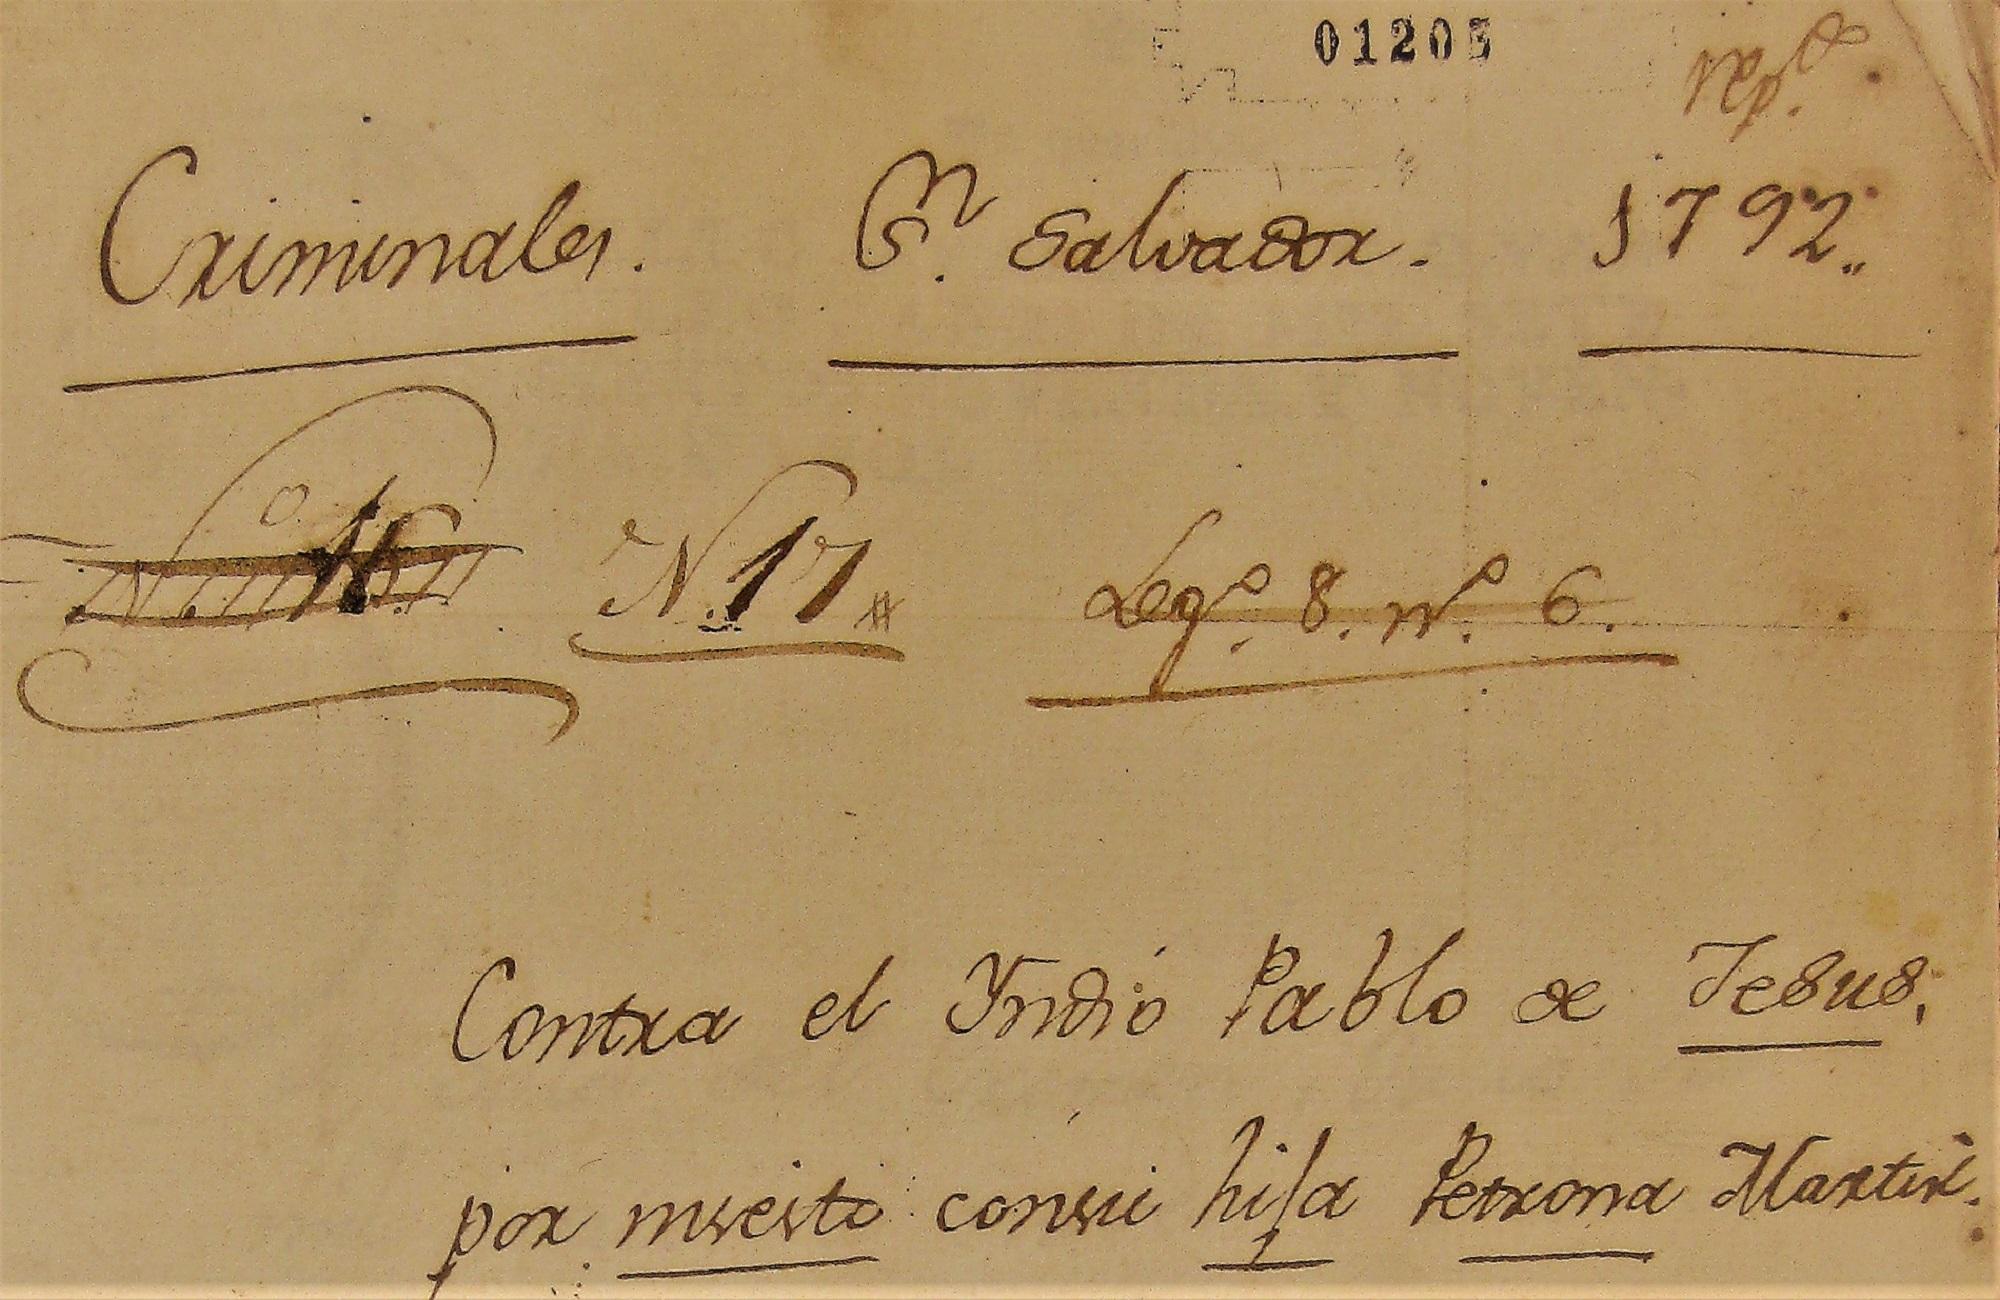 01205
Criminales. Sn. Salvador. 1792„
N. 17 Lego. 8. no. 6.
Contra el Yndio Pablo de Jesus,
por insesto con su hija Petrona Martin.